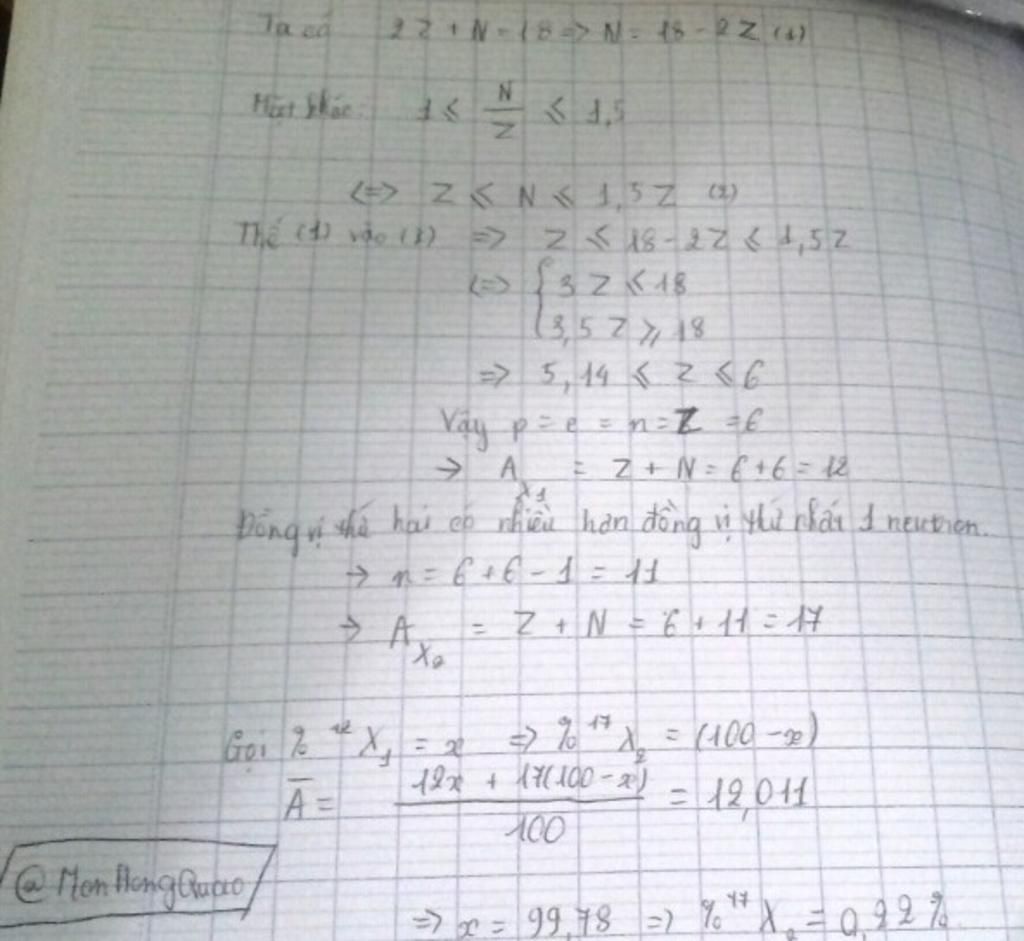 Ta có 2Z + N = 18 => N = 18 - 2Z (1)
Mặt khác: 1 ≤ N/Z ≤ 1,5
<=> Z ≤ N ≤ 1,5Z (2)
Thế (1) vào (2) => Z ≤ 18 - 2Z ≤ 1,5Z
<=> { 3Z ≤ 18
3,5Z ≥ 18
=> 5,14 ≤ Z ≤ 6
Vậy p = e = n = Z = 6
→ A_X1 = Z + N = 6 + 6 = 12
Đồng vị thứ hai có nhiều hơn đồng vị thứ nhất 1 neutron.
→ n = 6 + 6 - 1 = 11
→ A_X2 = Z + N = 6 + 11 = 17
Gọi % ¹²X₁ = x => % ¹⁷X₂ = (100 - x)
A̅ = (12x + 17(100 - x))/100 = 12,011
=> x = 99,78 => % ¹⁷X₂ = 0,22%